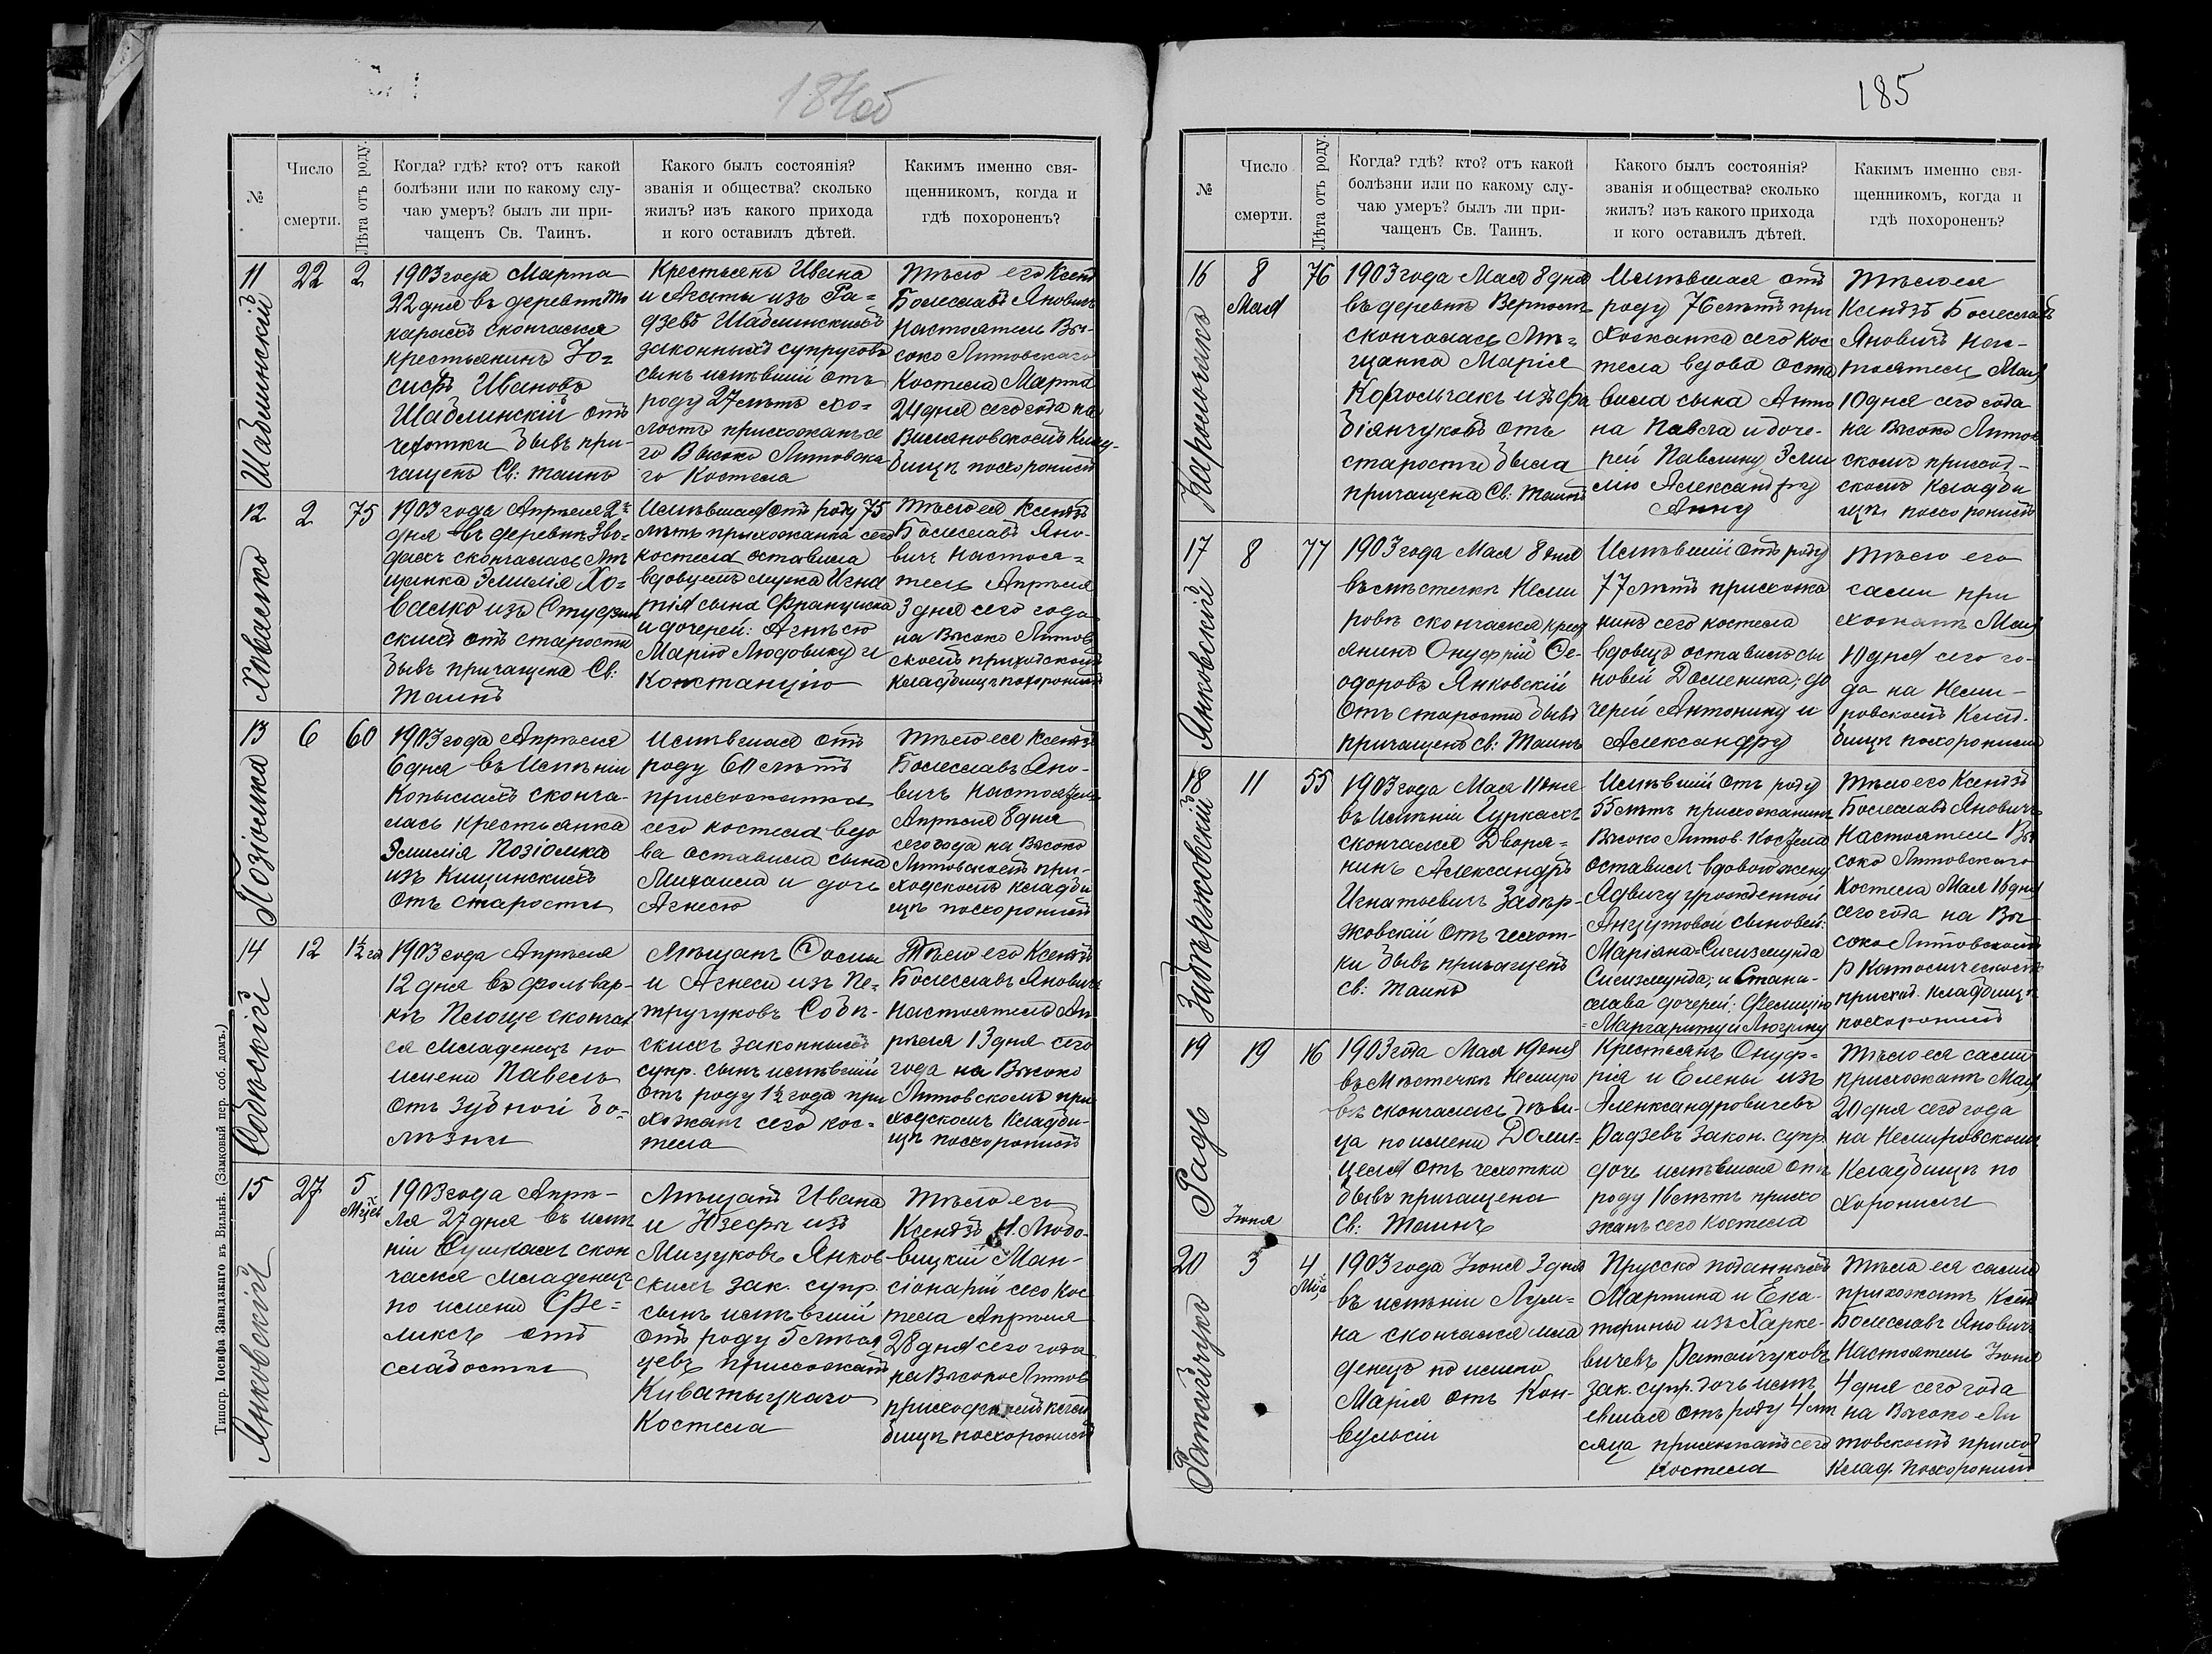 184об
№
Число
смерти.
Лѣта отъ роду.
Когда? гдѣ? кто? отъ какой
болѣзни или по какому слу-
чаю умеръ? былъ ли при-
чащенъ Св. Таинъ.
Какого былъ состоянія?
званія и общества? сколько
жилъ? изъ какого прихода
и кого оставилъ дѣтей.
Какимъ именно свя-
щенникомъ, когда и
гдѣ похороненъ?
11
Шаблинскій
22
2
1903 года Марта
22 дня въ деревнѣ То
карахъ скончался
крестьянинъ Іо=
сифъ Ивановъ
Шаблинскій отъ
чехотки бывъ при-
чащенъ Св: таинъ
Крестьянъ Ивана
и Агаты изъ Ра=
дзевъ Шаблинскихъ
законныхъ супруговъ
сынъ имѣвшій отъ
роду 27 лѣтъ хо=
лостъ прихожанъ се
го Высоко Литовска
го Костела
Тѣло его Ксендзъ
Болеславъ Яновичъ
Настоятель Вы-
соко Литовскаго
Костела Марта
24 дня сего года на
Виляновскомъ Клад-
бищѣ похоронилъ
12
Ховалко
2
75
1903 года Апрѣля 2го
дня въ деревнѣ Зво-
дахъ скончалась Мѣ
щанка Эмилія Хо=
валко изъ Студзин
скихъ отъ старости
бывъ причащена Св:
Таинъ
Имѣвшая отъ роду 75
лѣтъ прихожанка сего
костела оставила
вдовцемъ мужа Игна
тія сына Франциска
и дочерей: Агнесю
Марію Людовику и
Констанцію
Тѣло ея Ксендзъ
Болеславъ Яно-
вичъ Настоя=
тель Апрѣля
3 дня сего года
на Высоко Литов
скомъ приходскомъ
кладбищѣ похоронилъ
13
Позіомка
6
60
1903 года Апрѣля
6 дня въ Имѣніи
Копылахъ сконча-
лась крестьянка
Эмилія Позіомка
изъ Кищинскихъ
отъ старости
Имѣвшая отъ
роду 60 лѣтъ
прихожанка
сего костела вдо
ва оставила сына
Михаила и дочь
Агнесю
Тѣло ея Ксендзъ
Болеславъ Яно-
вичъ Настоятель
Апрѣля 8 дня
сего года на Высоко
Литовскомъ при-
ходскомъ кладби
щѣ похоронилъ
14
Собѣскій
12
1½ го
1903 года Апрѣля
12 дня въ фольвар-
кѣ Пелюще скончал
ся младенецъ по
имени Павелъ
отъ зубной бо=
лѣзни
Мѣщанъ Фомы
и Агнеси изъ Пе=
тручуковъ Собѣ-
скихъ законныхъ
супр. сынъ имѣвшій
отъ роду 1½ года при
хожанъ сего кос-
тела
Тѣло его Ксендзъ
Болеславъ Яновичъ
Настоятель Ап
рѣля 13 дня сего
года на Высоко
Литовскомъ при
ходскомъ Кладби-
щѣ похоронилъ
15
Янковскій
27
5
Мѣцев
1903 года Апрѣ-
ля 27 дня въ имѣ
ніи Сушкахъ скон
чался младенецъ
по имени Фе=
ликсъ отъ
слабости
Мѣщанъ Ивана
и Юзефы изъ
Мицуковъ Янков
скихъ зак. супр.
сынъ имѣвшій
отъ роду 5 мѣся
цевъ прихожанъ
Киватыцкаго
Костела
Тѣло его
Ксендзъ И. Любо-
вицкій Ман-
сіонарій сего Кос
тела Апрѣля
28 дня сего года
на Высоко Литов
приходскомъ клад
бищѣ похоронилъ
Типогр. Іосифа Завадзкаго въ Вильнѣ. (Замковый пер. соб. домъ.)
185
№
Число
смерти.
Лѣта отъ роду.
Когда? гдѣ? кто? отъ какой
болѣзни или по какому слу-
чаю умеръ? былъ ли при-
чащенъ Св. Таинъ.
Какого былъ состоянія?
званія и общества? сколько
жилъ? изъ какого прихода
и кого оставилъ дѣтей.
Какимъ именно свя-
щенникомъ, когда и
гдѣ похороненъ?
16
8
Мая
76
1903 года Мая 8 дня
въ деревнѣ
скончалась Мѣ=
щанка Марія
изъ Фа
біянчуковъ отъ
старости была
причащена Св: Таинъ
Имѣвшая отъ
роду 76 лѣтъ при
хожанка сего кос
тела вдова оста
вила сына Анто
на Павла и доче-
рей Павлину Эми
лію Александру
Анну
Тѣло ея
Ксендзъ Болеславъ
Яновичъ Нас-
тоятель Мая
10 дня сего года
на Высоко Литов
скомъ приход-
скомъ Кладби
щѣ похоронилъ
17
Янковскій
8
77
1903 года Мая 8 дня
въ мѣстечкѣ Неми
ровѣ скончался крест
янинъ Онуфрій Ѳе-
одоровъ Янковскій
Отъ старости бывъ
причащенъ св: Таинъ
Имѣвшій отъ роду
77 лѣтъ прихожа
нинъ сего костела
вдовецъ оставилъ сы
новей Доменика; до
черей Антонину и
Александру
Тѣло его
сами при
хожане Мая
10 дня сего го-
да на Неми-
ровскомъ Клад-
бищѣ похоронили
18
Забѣржовскій
11
55
1903 года Мая 11 дня
въ Имѣніи Цуркахъ
скончался Дворя=
нинъ Александръ
Игнатьевичъ Забѣр-
жовскій отъ чехот-
ки бывъ причащенъ
Св: Таинъ
Имѣвшій отъ роду
55 лѣтъ прихожанинъ
Высоко Литов. Костела
оставилъ вдовою жену
Ядвигу урожденной
Анцутовой сыновей:
Маріяна=Сигизмунда
Сигизмунда; и Стани-
слава дочерей: Фелицію
=Маргариту и Люцину
Тѣло его Ксендзъ
Болеславъ Яновичъ
Настоятель Вы
соко Литовскаго
Костела Мая 16 дня
сего года на Вы-
соко Литовскомъ
Р Католическомъ
приход. кладбищѣ
похоронилъ
19
Радь
19
16
1903 года Мая 19 дня
въ Мѣстечкѣ Немиро
вѣ скончалась дѣви-
ца по имени Доми-
целя отъ чехотки
бывъ причащена
Св: Таинъ
Крестьянъ Онуф-
рія и Елены изъ
Аленксандровичевъ
Радзевъ закон. супр.
дочь имѣвшая отъ
роду 16 лѣтъ прихо
жанъ сего костела
Тѣло ея сами
прихожане Мая
20 дня сего года
на Немировскомъ
Кладбищѣ по
хоронили
Іюня
20
Ратайчукъ
3
4
Мѣца
1903 года Іюня 3 дня
въ имѣніи Лум-
на скончался мла
денецъ по имени
Марія отъ Кон-
вульсіи
Прусско подданныхъ
Мартина и Ека-
терины изъ Харке-
вичевъ Ратайчуковъ
зак. супр. дочь имѣ
евшая отъ роду 4 мѣ
сяца прихожанъ сего
Костела
Тѣла ея сами
прихожане Ксенд
Болеславъ Яновичъ
Настоятель Іюня
4 дня сего года
на Высоко Ли
товскомъ приход
Клад. похоронилъ